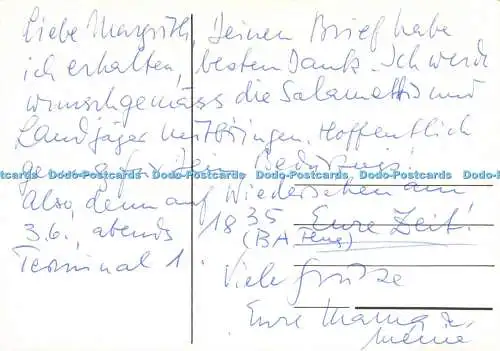 Liebe Margrith, Deinen Brief habe
ich erhalten, besten Dank. Ich werde
wunschgemäss die Salamettis und
Landjäger mitbringen. Hoffentlich
Dodo-Postcards Dodo-Postcards Dodo-Postcards Dodo-Postcards Dodo-Postcards
Also, denn auf Wiedersehen am
3.6. abends 18 35 Eure Zeit!
(BA
Terminal 1.
Viele Grüsse
Eure Mama &